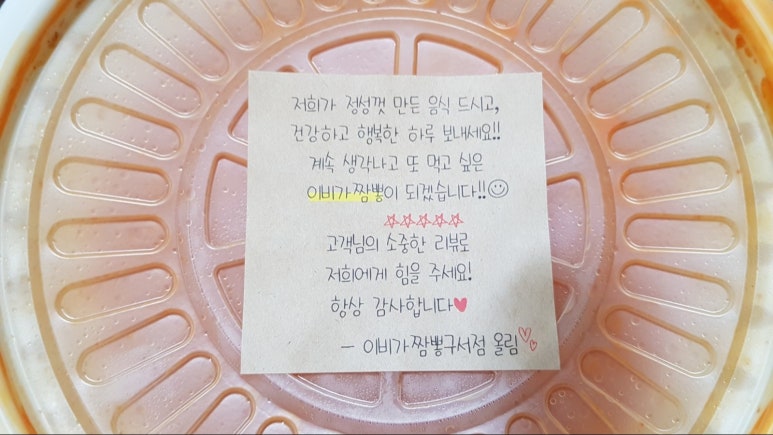 저희가 정성껏 만든 음식 드시고,
건강하고 행복한 하루 보내세요!!
계속 생각나고 또 먹고 싶은
이비가짬뽕이 되겠습니다!!
고객님의 소중한 리뷰로
저희에게 힘을 주세요!
항상 감사합니다
- 이비가짬뽕구서점 올림